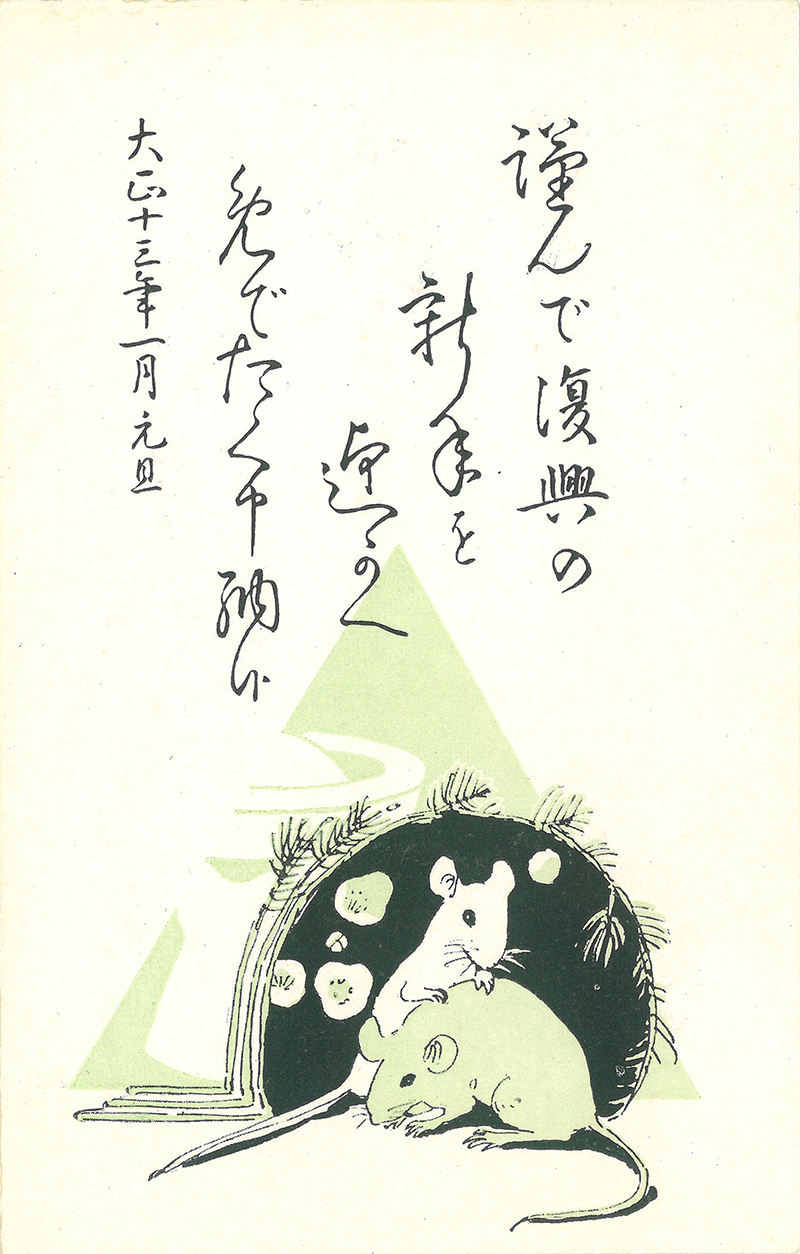 謹んで復興の
新年を
迎かへ
免でたく申納候
大正十三年一月元旦